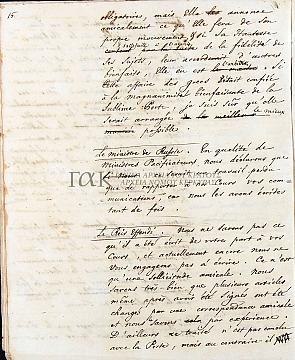 15
obligatoires, mais Elle annonce
amicalement ce qu'Elle fera de son
propre mouvement. Si Sa Hautesse
de la fidélité de
ses sujets, leur d'autres
bienfaits, Elle en est
Cette affaire des grecs étant confié
à la magnanimité bienfaisante de la
Sublime Porte, je suis sûr qu'elle
serait arrangée le mieux
possible.
Le ministre de Russie. En qualité de
Ministres Pacificateurs, nous déclarons que
ce serait un travail perdu
que de rapporter à nos Cours vos com-
munications, car nous les avons écrites
tant de fois.
Le Reis Effendi. Nous ne savons pas ce
qu'il a été écrit de votre part à vos
Cours, et actuellement encore nous ne
vous engageons pas à écrire. Ce n'est
qu'une sollicitude amicale. Nous
savons très bien que plusieurs articles
même après avoir été signés ont été
changés par une correspondance amicale
et nous savons par expérience.
D'ailleurs ce traité n'est pas conclu
avec la Porte, mais au contraire il
ΓΑΚ